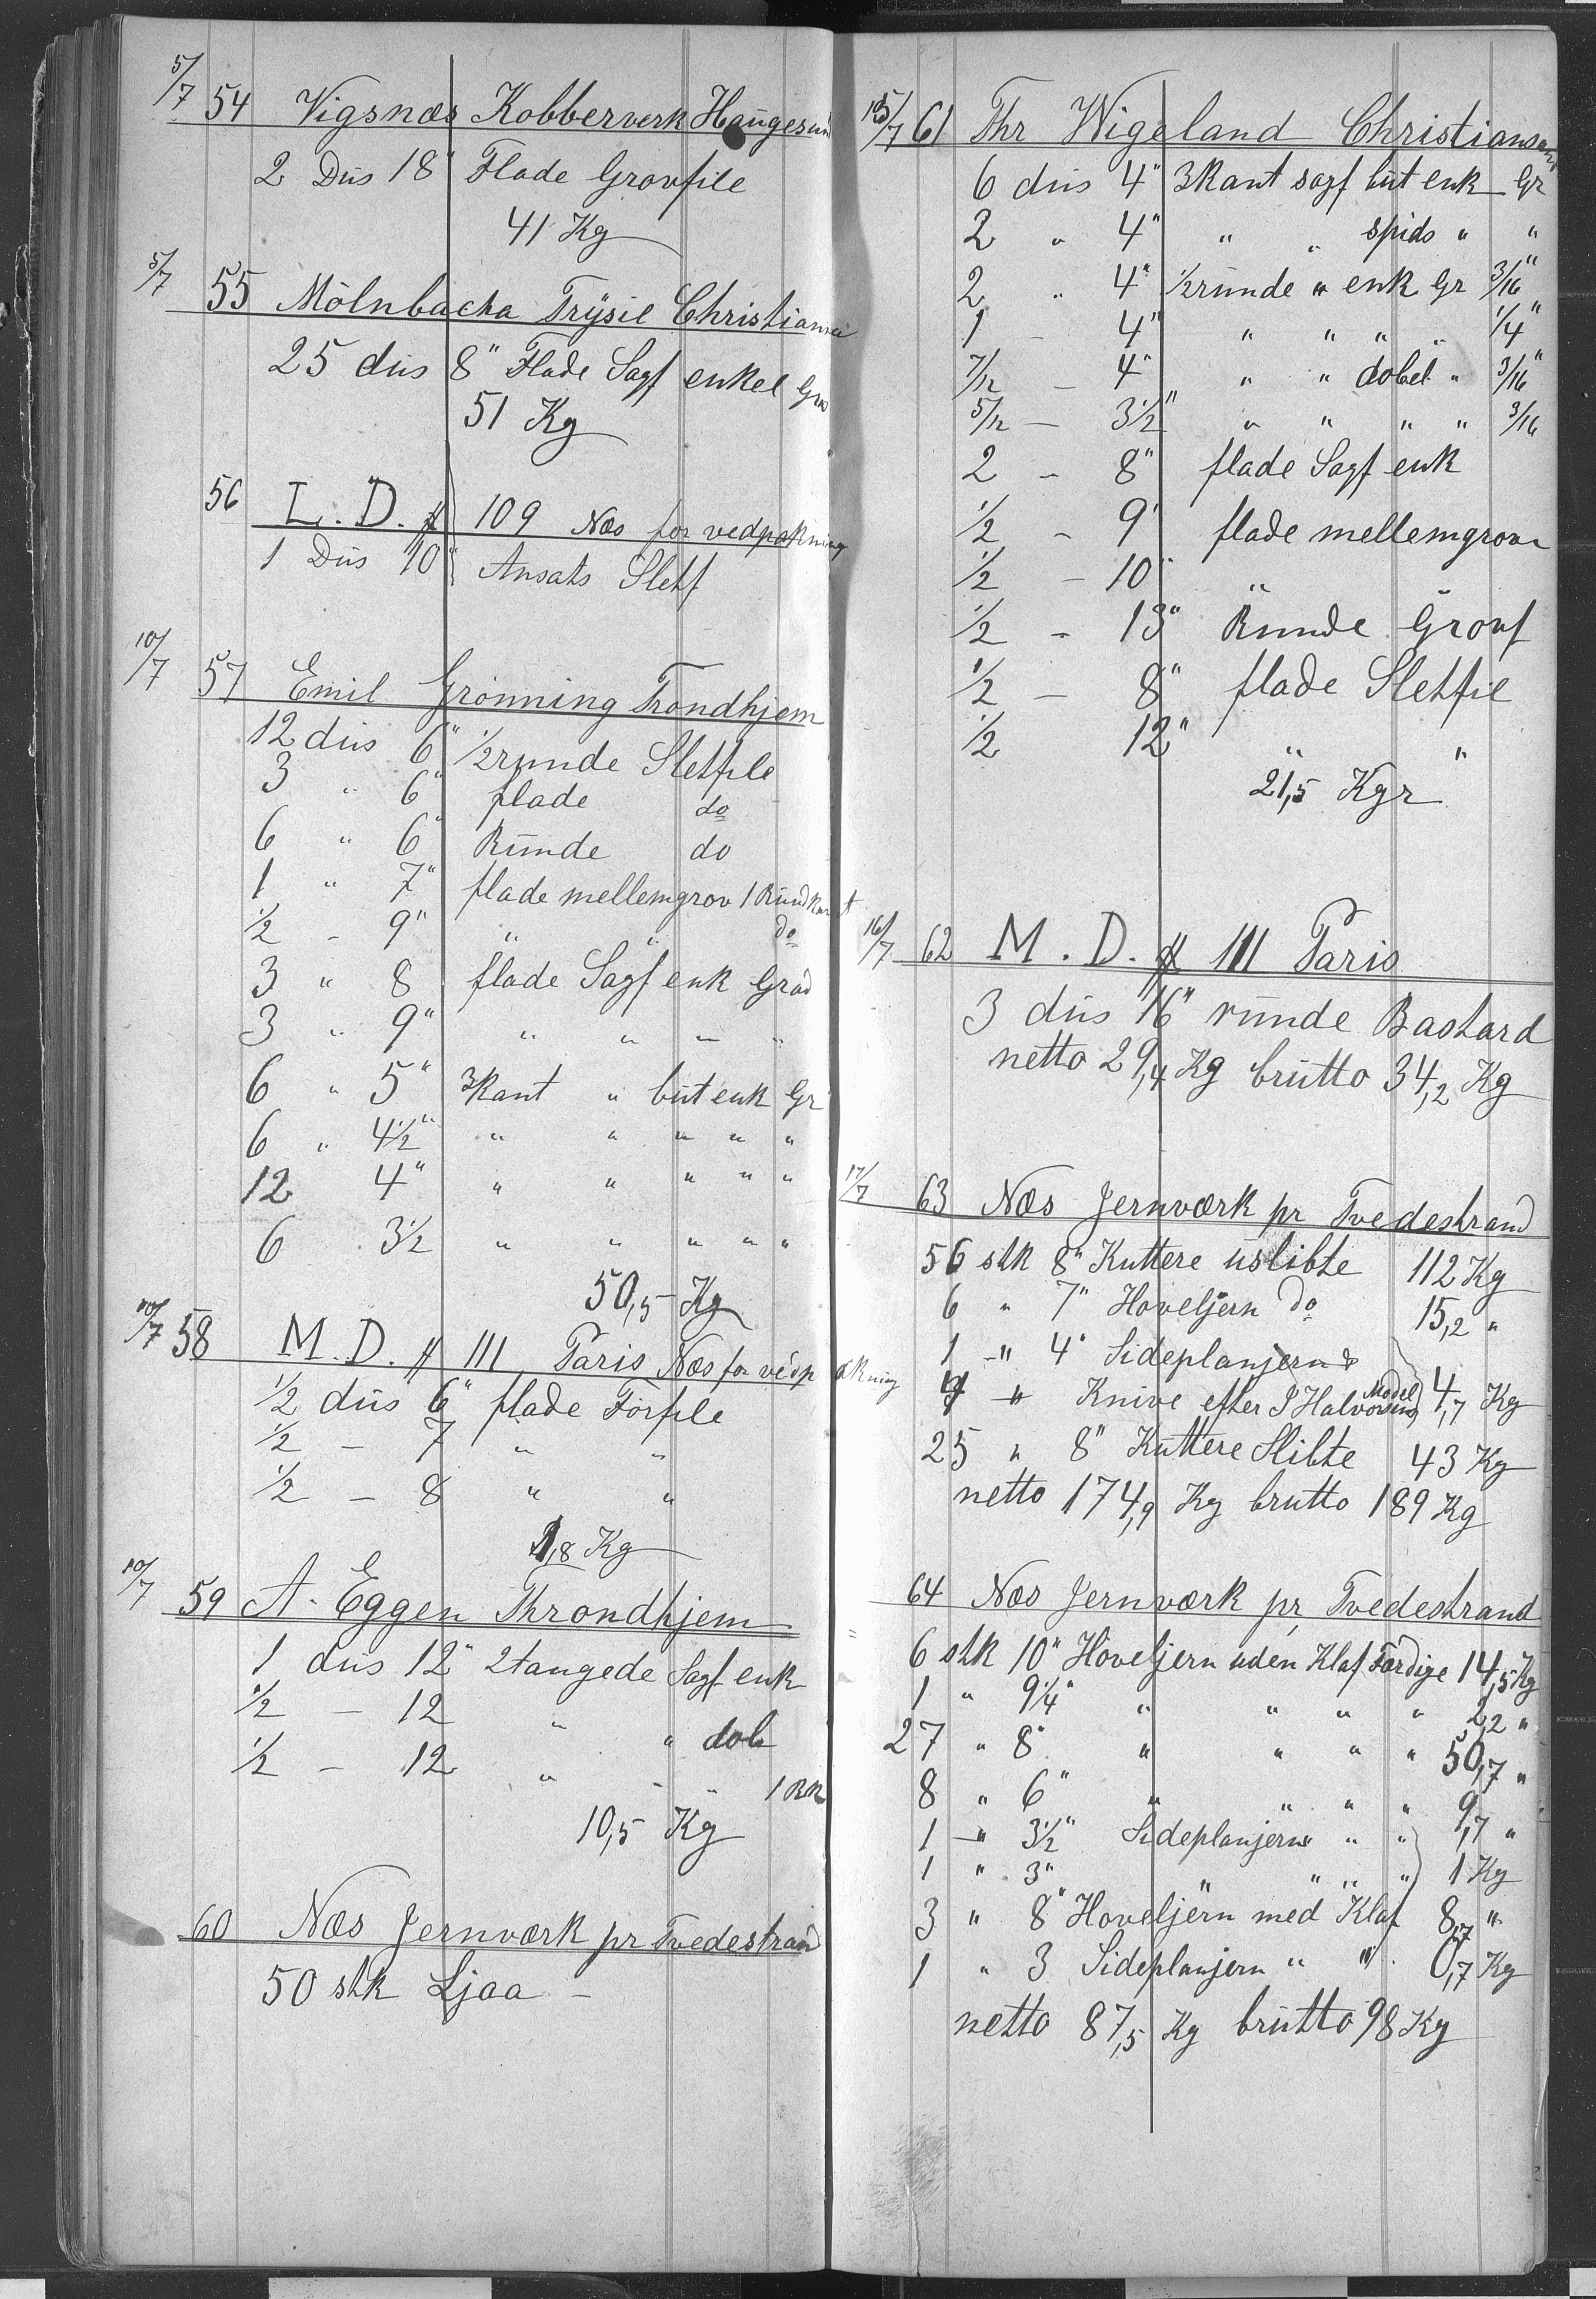 5/7 54 Vigsnæs Kobberverk Haugesund
2 Dus 18" Flade Grovfile
41 Kg
5/7 55 Mölnbacka Trysil Christiania
25 dus 8" Flade Sagf enkel Grad
51 Kg
56 L. D. # 109 Næs for vedpakning
1 Dus 10" Ansats Sletf
10/7 57 Emil Grønning Trondhjem
12 dus 6" 1/2runde Sletfile
3 " 6" flade do
6 " 6" Runde do
1 " 7" flade mellemgrov 1 Rundkant
1/2 - 9" " " do
3 " 8 flade Sagf enk Grad
3 " 9" " " " "
6 " 5" 3kant " but enk Gr
6 " 4 1/2" " " " " "
12 4" " " " " "
6 3 1/2 " " " " "
50,5 Kg
10/7 58 M. D. # 111 Paris Næs for vedpakning
1/2 dus 6" flade Førfile
1/2 - 7 " "
1/2 - 8 " "
1,8 Kg
10/7 59 A. Eggen Throndhjem
1 dus 12" 2tangede Sagf enk
1/2 - 12 " " dob
1/2 - 12 " " " 1 RK
10,5 Kg
60 Næs Jernværk pr Tvedestrand
50 stk Ljaa -
15/7 61 Thr Wigeland Christiansand
6 dus 4" 3kant sagf but enk Gr
2 " 4" " " spids " "
2 " 4" 1/2runde " enk Gr 3/16"
1 - 4" " " " " 1/4"
7/12 - 4" " " dobel " 3/16"
5/12 - 3 1/2" " " " " 3/16
2 - 8" flade Sagf enk
1/2 - 9" flade mellemgrov
1/2 - 10" "
1/2 - 13" Runde Grovf
1/2 - 8" flade Sletfil
1/2 12" " "
21,5 Kgr
16/7 62 M. D. # 111 Paris
3 dus 16" runde Bastard
netto 29,4 Kg brutto 34,2 Kg
17/7 63 Næs Jernværk pr Tvedestrand
56 stk 8" Kuttere uslibte 112 Kg
6 " 7" Hoveljern do 15,2 "
1 -"- 4" Sideplanjern
" Knive efter J Halvorsens Model 4,7 Kg
25 " 8" Kuttere Slibte 43 Kg
netto 174,9 Kg brutto 189 Kg
64 Næs Jernværk pr Tvedestrand
6 stk 10" Høveljern uden Klaf Færdige 14,5 Kg
1 " 9 1/4" " " " " 2,2 "
27 " 8" " " " " 50,7 "
8 " 6" " " " " 9,7 "
1 -"- 3 1/2" Sideplanjern " "
1 " 3" " " " " 1 Kg
3 " 8" Hoveljern med Klaf 8,7 "
1 " 3 Sideplanjern " " 0,7 Kg
netto 87,5 Kg brutto 98 Kg